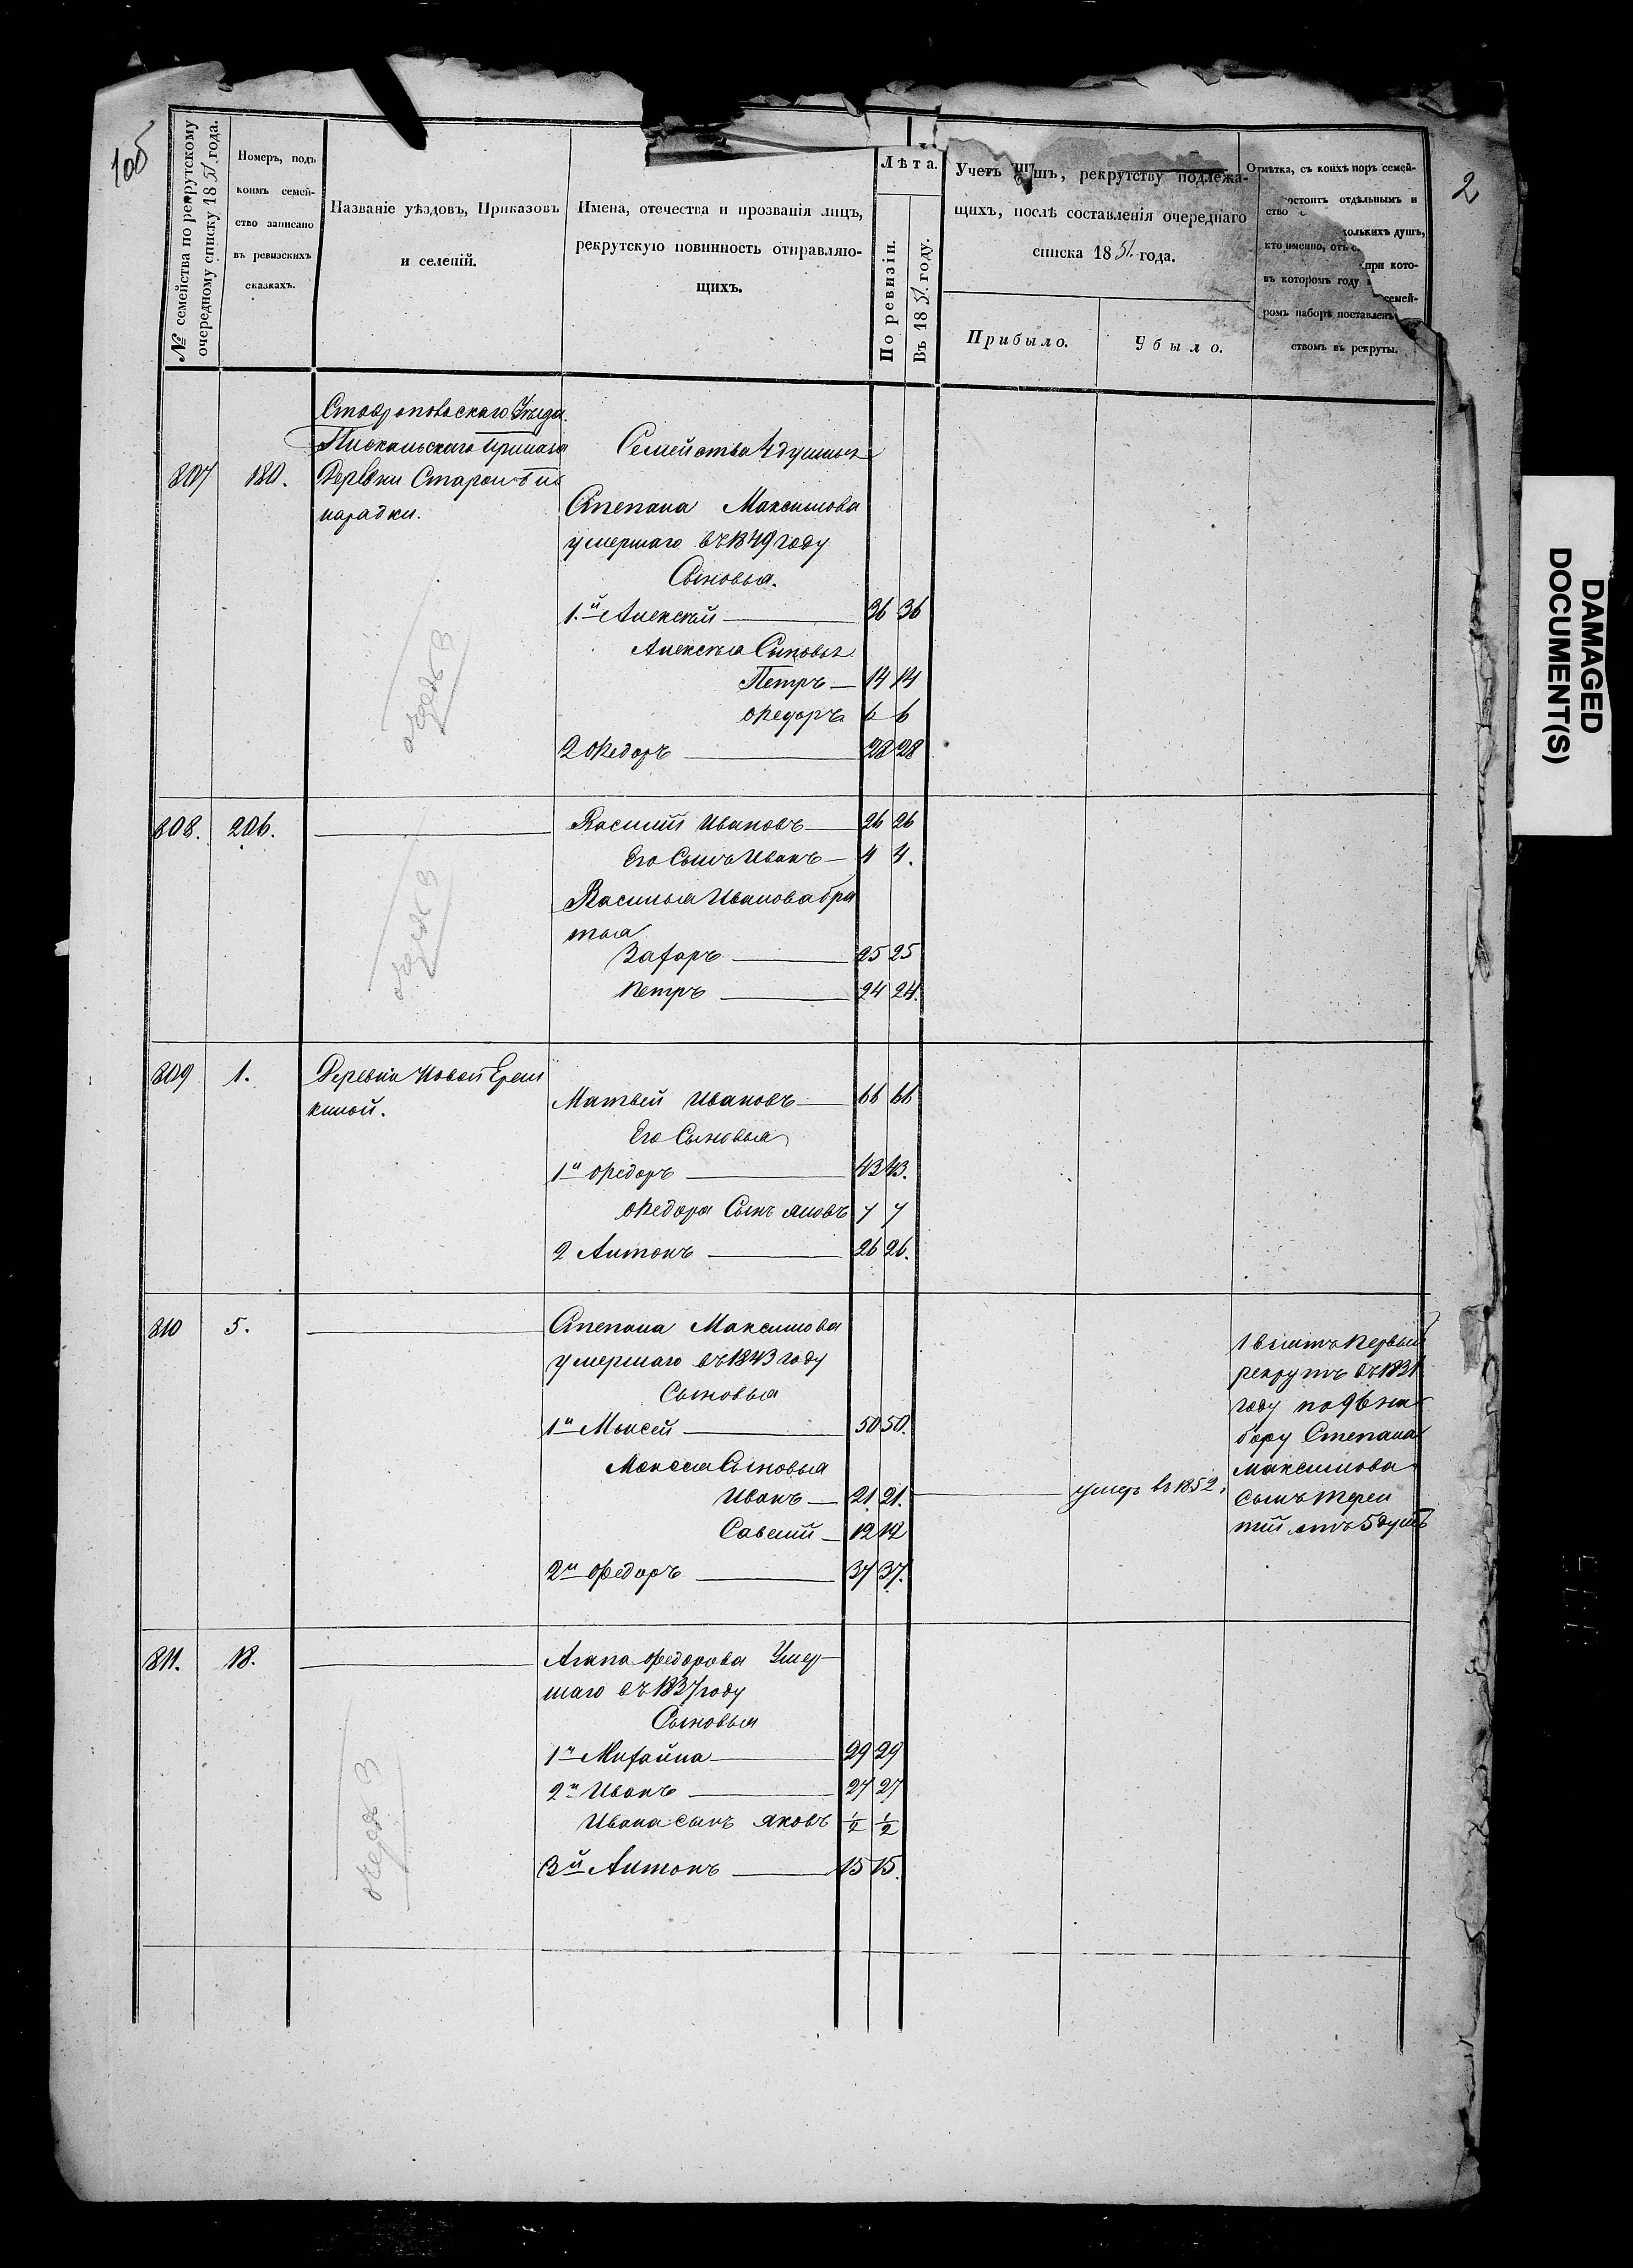 106
2
№ семейства по рекрутскому
очередному списку 1851 года.
Номеръ, подъ
коимъ семей-
ство записано
въ ревизскихъ
сказкахъ.
Названіе уѣздовъ, Приказовъ
и селеній.
Имена, отечества и прозванія лицъ,
рекрутскую повинность отправляю-
щихъ.
Лѣта.
По ревизіи.
Въ 1851 году.
Учетъ душъ, рекрутству подлежа-
щихъ, послѣ составленія очереднаго
списка 1851 года.
Прибыло.
Убыло.
Отмѣтка, съ коихъ поръ семей-
ство состоитъ отдѣльнымъ и
кольких душъ,
кто именно, отъ
при кото-
въ которомъ году
семей-
ромъ наборѣ поставленъ
ствомъ въ рекруты.
Ставропольскаго Уѣзда
Пискальскаго приказа
807 180. Деревни Старой
Семейства 4 душныя
Степана Максимова
умершаго въ 1849 году
Сыновья.
1.й Алексѣй 36 36
Алексѣя Сыновья
Петръ 14 14
Ѳедоръ 6 6
2 Ѳедоръ 28 28
808. 206. Василій Ивановъ 26 26
Его Сынъ Иванъ 4 4.
Василья Иванова бра
тья
Захаръ 25 25
Петръ 24 24.
809 1. Деревни Новой Ерем
киной.
Матвей Ивановъ 66 66
Его Сыновья
1й Ѳедоръ 43 43.
Ѳедора Сынъ Яковъ 7 7
2 Антонъ 26 26.
810 5. Степана Максимова
умершаго въ 1843 году
Сыновья
1й Моисей 50 50.
Моисея Сыновья
Иванъ 21 21. умеръ въ 1852.
Савелій 12 12
2й Ѳедоръ 37 37.
1 взятъ первый
рекрутъ въ 1831
году по 96 на
бору Степана
Максимова
Сынъ Терен
тій отъ 5 душъ
811. 18. Агапа Ѳедорова Умер
шаго въ 1837 году
Сыновья
1й Михайла 29 29
2й Иванъ 27 27
Ивана сынъ Яковъ 1/2 1/2
3й Антонъ 15 15.
DAMAGED
DOCUMENT(S)